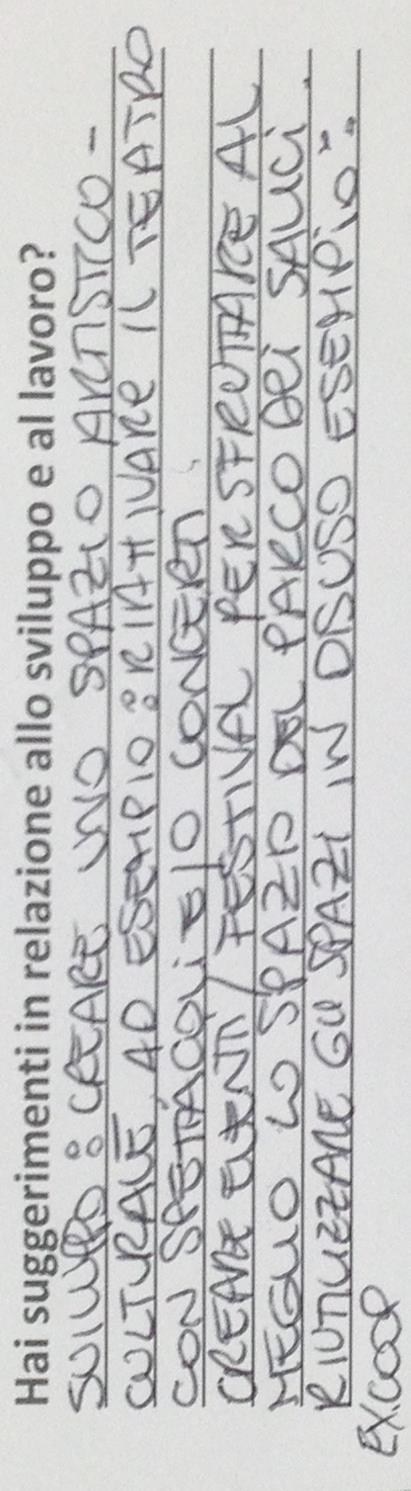 Hai suggerimenti in relazione allo sviluppo e al lavoro?
SVILUPPO: CREARE UNO SPAZIO ARTISTICO-
CULTURALE, AD ESEMPIO: RIATTIVARE IL TEATRO
CON SPETTACOLI E/O CONCERTI.
CREARE EVENTI/FESTIVAL PER SFRUTTARE AL
MEGLIO LO SPAZIO DEL PARCO DEI SALICI.
RIUTILIZZARE GLI SPAZI IN DISUSO ESEMPIO:
EX.COOP